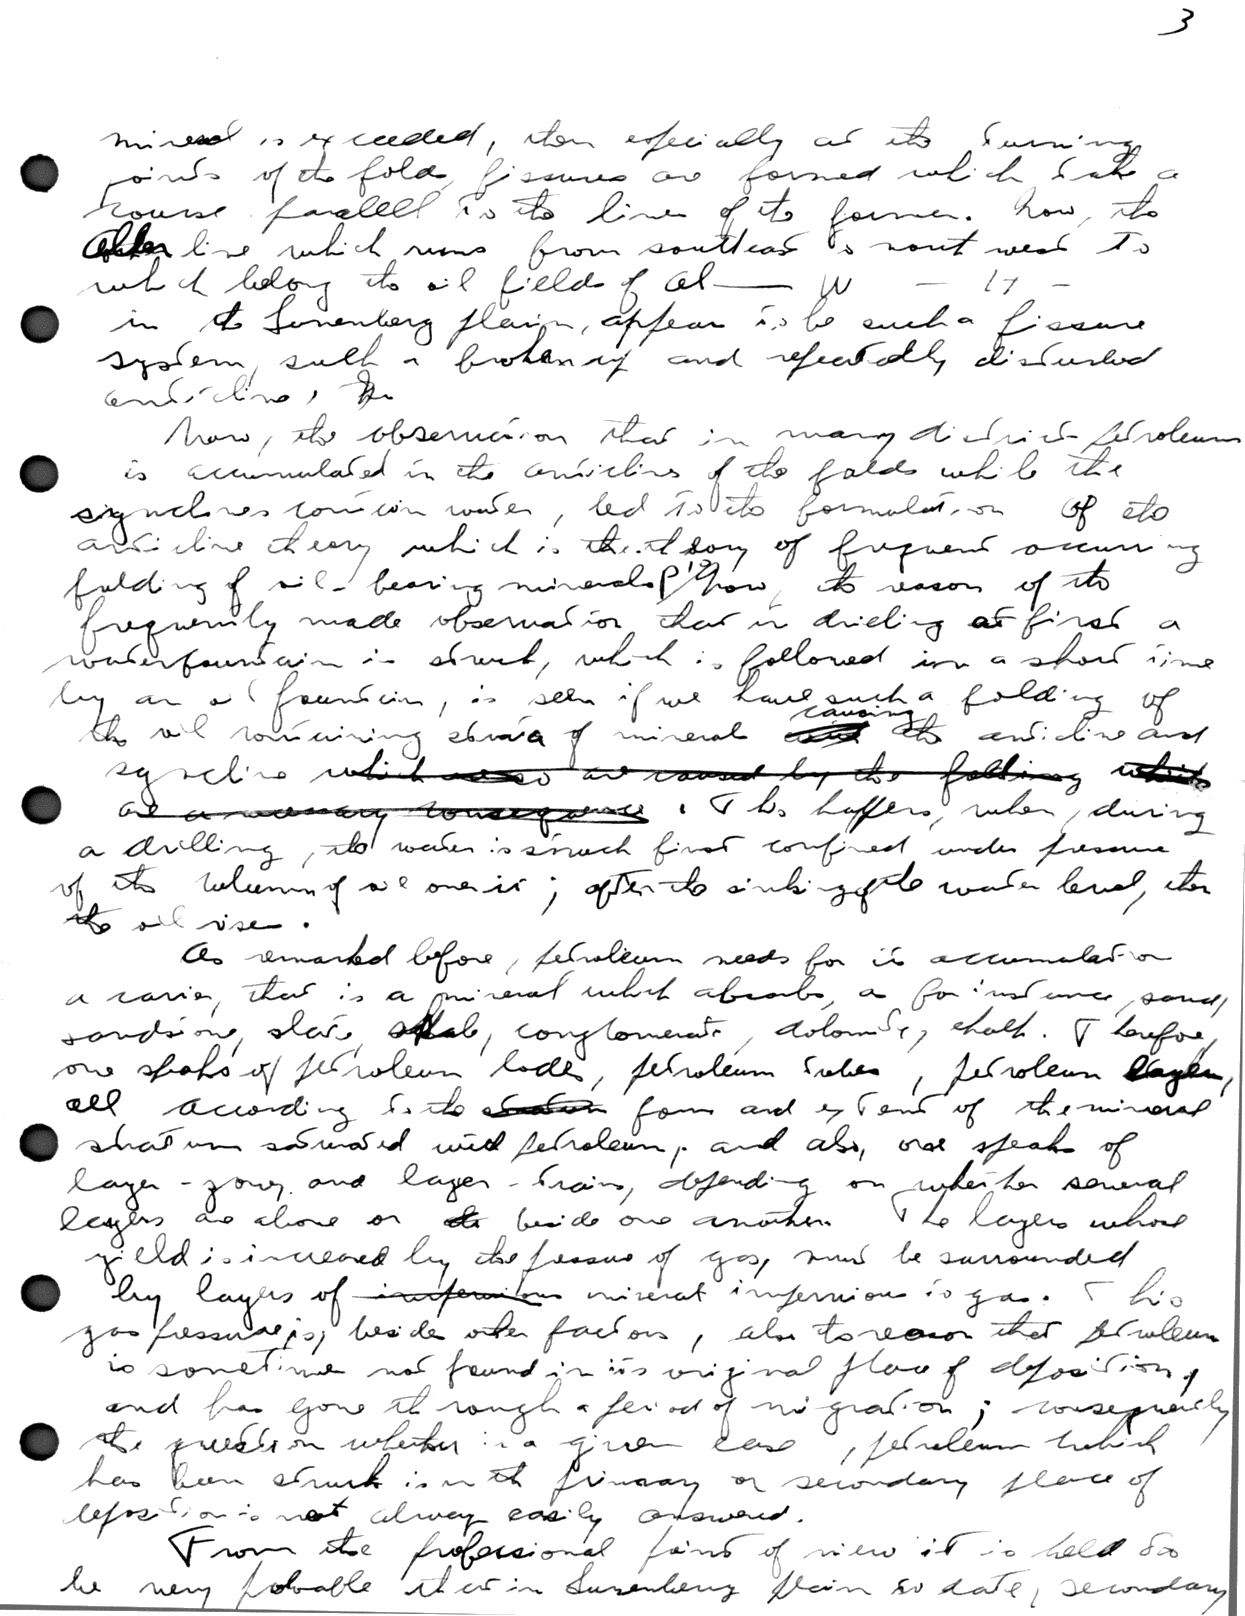 3
mineral is exceeded, then especially at the turning
points of the folds, fissures are formed which take a
course parallell to the lines of the former. Now, the
line which runs from southeast to north west to
which belong the oil fields of Ol— W — H —
in the Lunenberg plain, appear to be such a fissure
system, such a broken and repeatedly disturbed
anticline,
Now, the observation that in many districts petroleum
is accumulated in the anticlines of the folds while the
synclines contain water, led to the formulation of the
anticline theory which is the theory of frequent occurring
folding of oil-bearing minerals. Now, the reason of the
frequently made observation that in drilling at first a
waterfountain is struck, which is followed in a short time
by an oil fountain, is seen if we have such a folding of
the oil containing strata of mineral causing the anticline and
syncline which also are caused by the folding which
are a necessary consequence. This happens, when, during
a drilling, the water is struck first confined under pressure
of the column of oil over it; after the sinking of the water level, then
the oil rises.
As remarked before, petroleum needs for its accumulation
a carrier, that is a mineral which absorbs, as for instance, sand,
sandstone, slate, shale, conglomerate, dolomite, chalk. Therefore,
one speaks of petroleum lodes, petroleum tubes, petroleum layers,
all according to the form and extent of the mineral
stratum saturated with petroleum, and also, one speaks of
layer-zones, and layer-trains, depending on whether several
layers are above or beside one another. The layers whose
yield is increased by the pressure of gas, must be surrounded
by layers of impervious mineral impervious to gas. This
gas pressure is, beside other factors, also the reason that petroleum
is sometimes not found in its original place of deposition,
and has gone through a period of migration; consequently
the question whether in a given case, petroleum which
has been struck is in the primary or secondary place of
deposition is not always easily answered.
From the professional point of view it is held to
be very probable that in Lunenberg plain to date, secondary